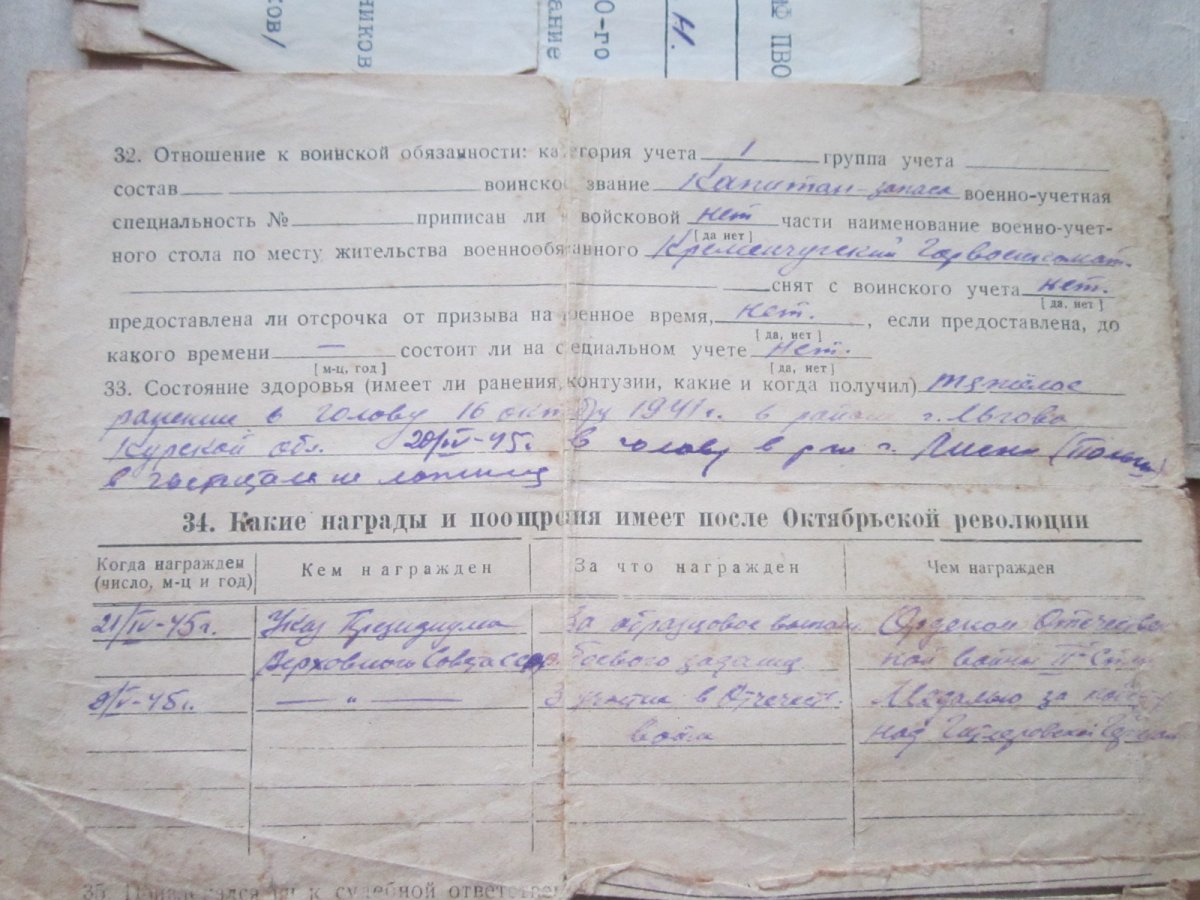 ПВО
Н.
О-го
ание
ников
сов/
32. Отношение к воинской обязанности: категория учета 1 группа учета
состав воинское звание Капитан-запаса военно-учетная
специальность № приписан ли к войсковой нет части наименование военно-учет-
[да нет]
ного стола по месту жительства военнообязанного Кременчугский Горвоенкомат.
снят с воинского учета нет.
[да, нет]
предоставлена ли отсрочка от призыва на военное время, нет. , если предоставлена, до
[да, нет]
какого времени — состоит ли на специальном учете нет.
[м-ц, год] [да, нет]
33. Состояние здоровья (имеет ли ранения, контузии, какие и когда получил) тяжёлое
ранение в голову 16 октября 1941 г. в районе г. Льгова
Курской обл. 20/IV-45г. в голову в р-не г. (Польш
в госпитале не
34. Какие награды и поощрения имеет после Октябрьской революции
Когда награжден (число, м-ц и год) Кем награжден За что награжден Чем награжден
21/IV-45г. Указ Президиума За образцовое выпол Орденом Отечествен
Верховного Совета СССР боевого задания ной войны II-степ
9/V-45г. — " — З участие в Отечеств. Медалью за победу
войне над Гитлеровской Герман
35. Привлекался ли к судебной ответствен